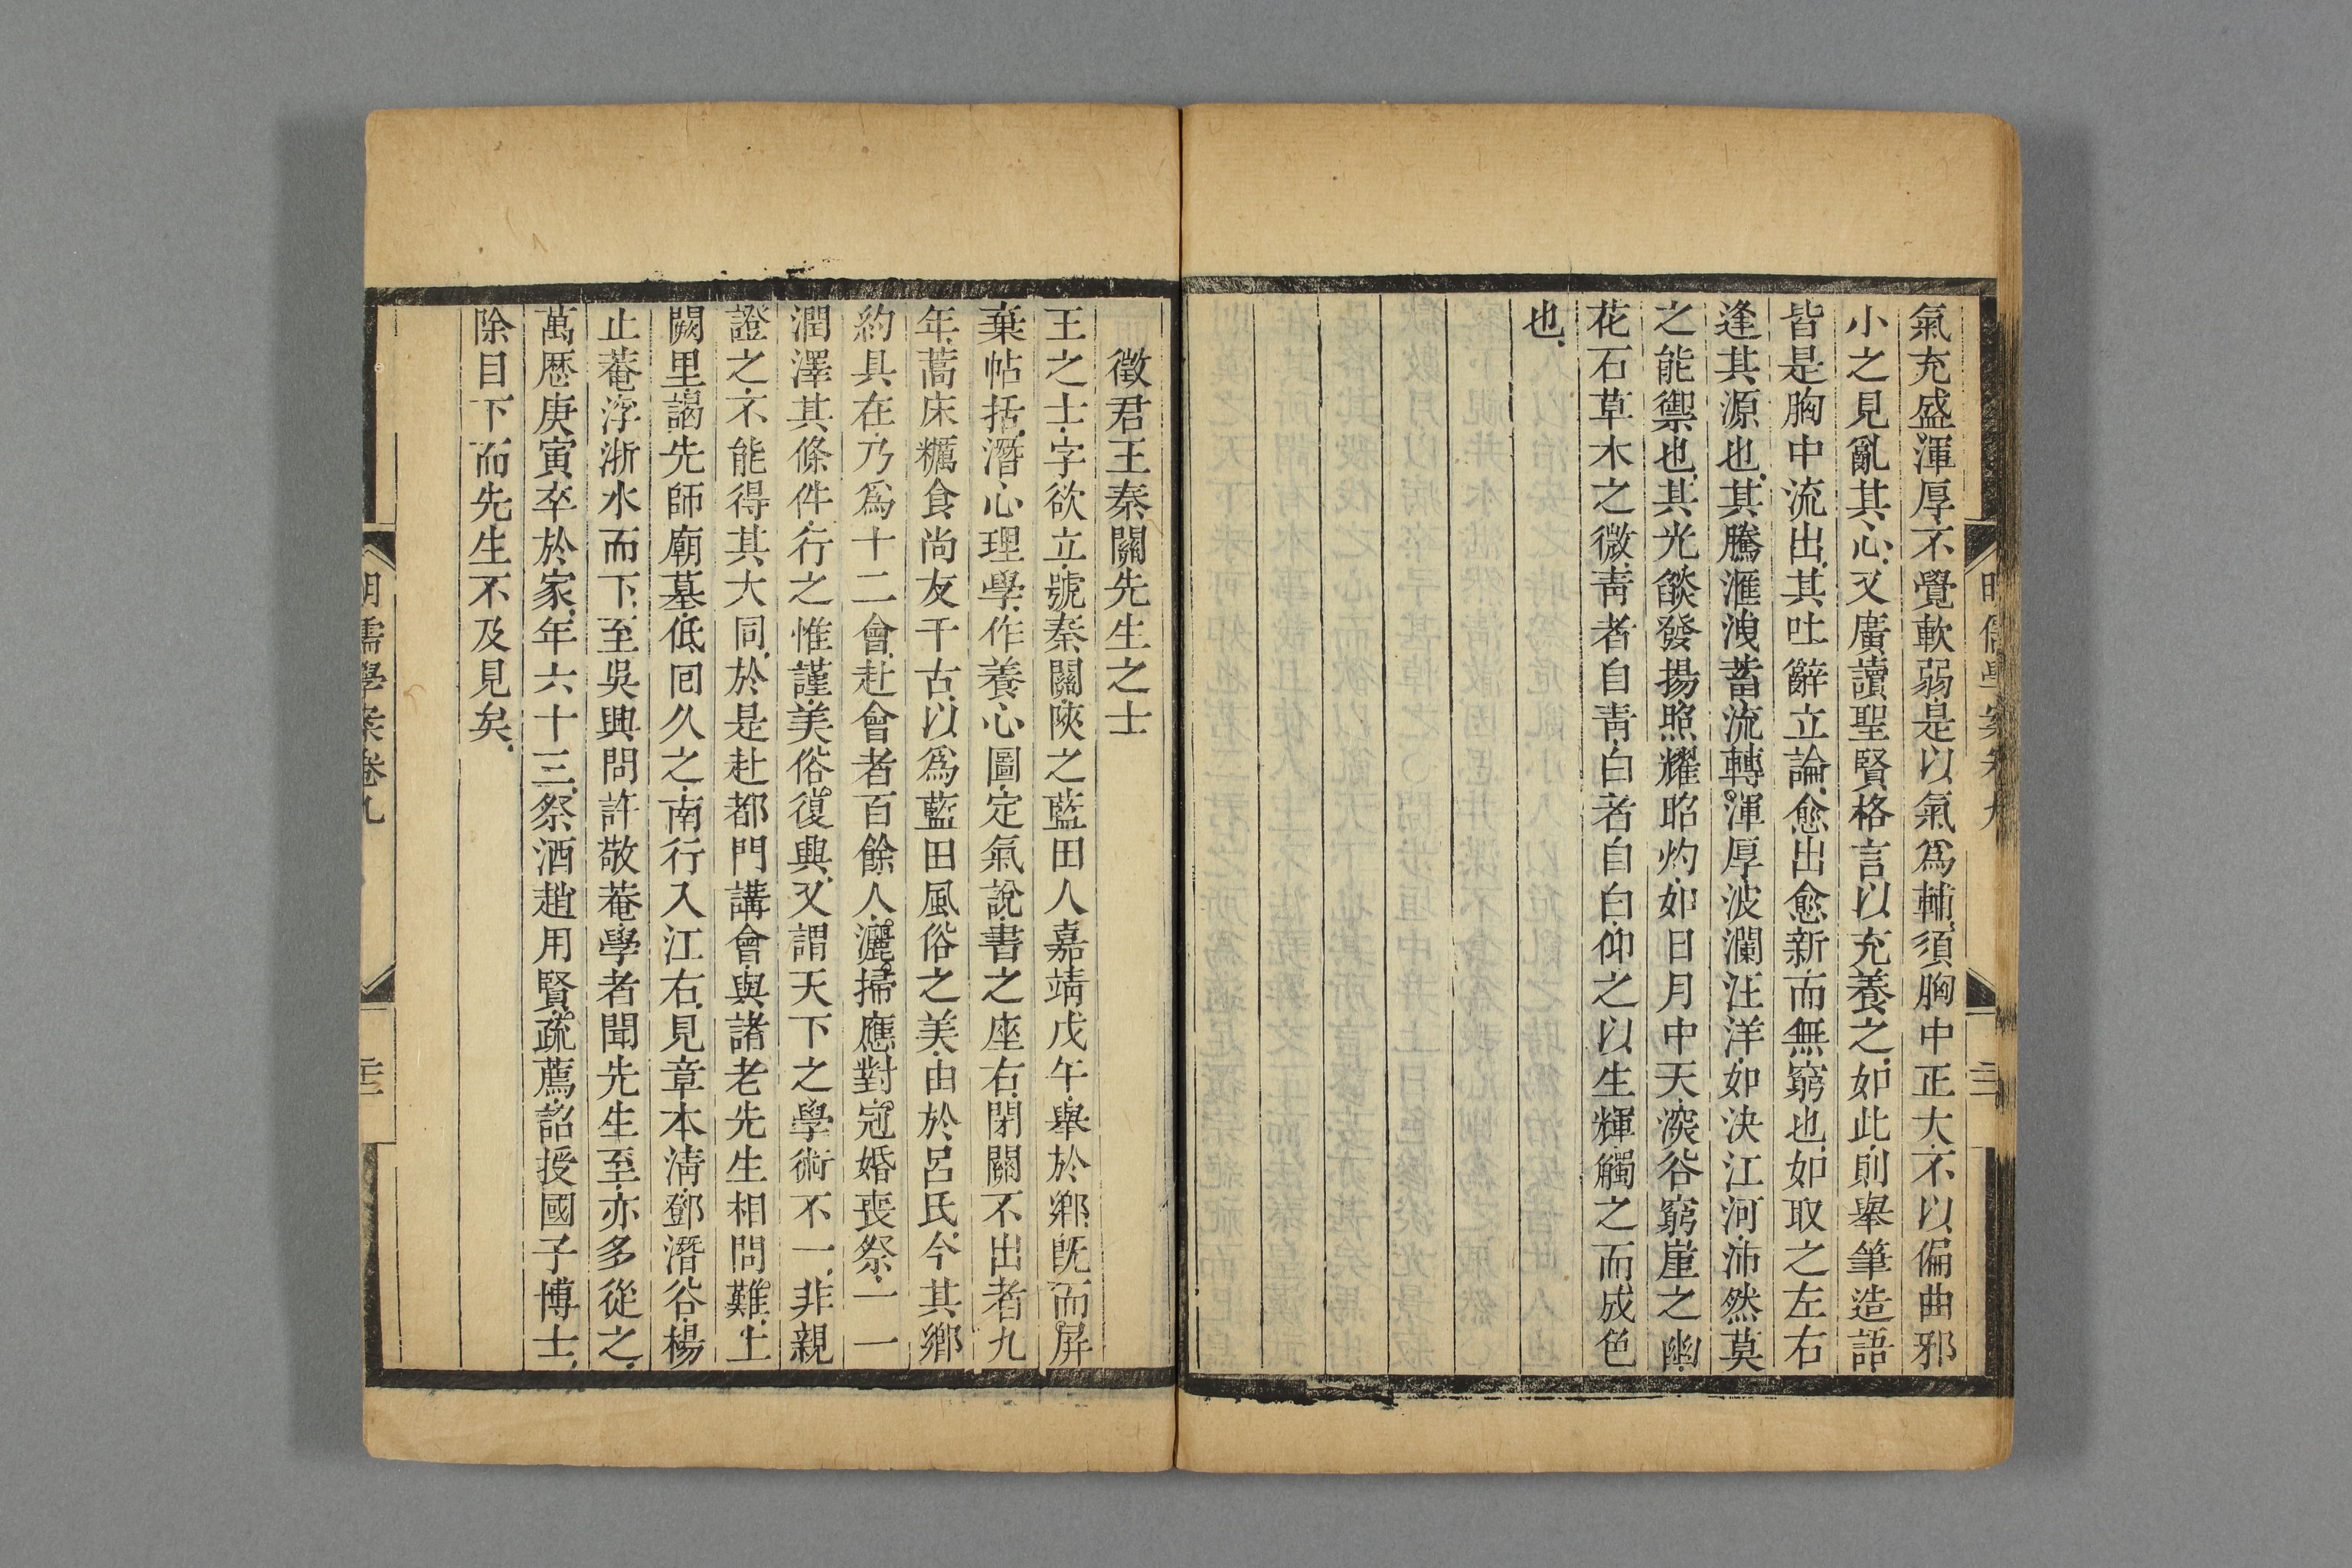 氣充盛渾厚不覺軟弱是以氣爲輔須胸中正大不以偏曲邪
小之見亂其心又廣讀聖賢格言以充養之如此則舉筆造語
皆是胸中流出其吐辭立論愈出愈新而無窮也如取之左右
逢其源也其騰滙洩蓄流轉渾厚波瀾汪洋如決江河沛然莫
之能禦也其光燄發揚照耀昭灼如日月中天深谷窮崖之幽
花石草木之微青者自青白者自白仰之以生輝觸之而成色
也
徵君王秦關先生之士
王之士字欲立號秦關陝之藍田人嘉靖戊午舉於鄉旣而屏
棄帖括潛心理學作養心圖定氣說書之座右閉關不出者九
年蒿床糲食尚友千古以爲藍田風俗之美由於呂氏今其鄉
約具在乃爲十二會赴會者百餘人灑掃應對冠婚喪祭一一
潤澤其條件行之惟謹美俗復興又謂天下之學術不一非親
證之不能得其大同於是赴都門講會與諸老先生相問難上
闕里謁先師廟墓低囘久之南行入江右見章本淸鄧潛谷楊
止菴浮浙水而下至吳興問許敬菴學者聞先生至亦多從之
萬歷庚寅卒於家年六十三祭酒趙用賢疏薦詔授國子博士
除目下而先生不及見矣
明儒學案卷九